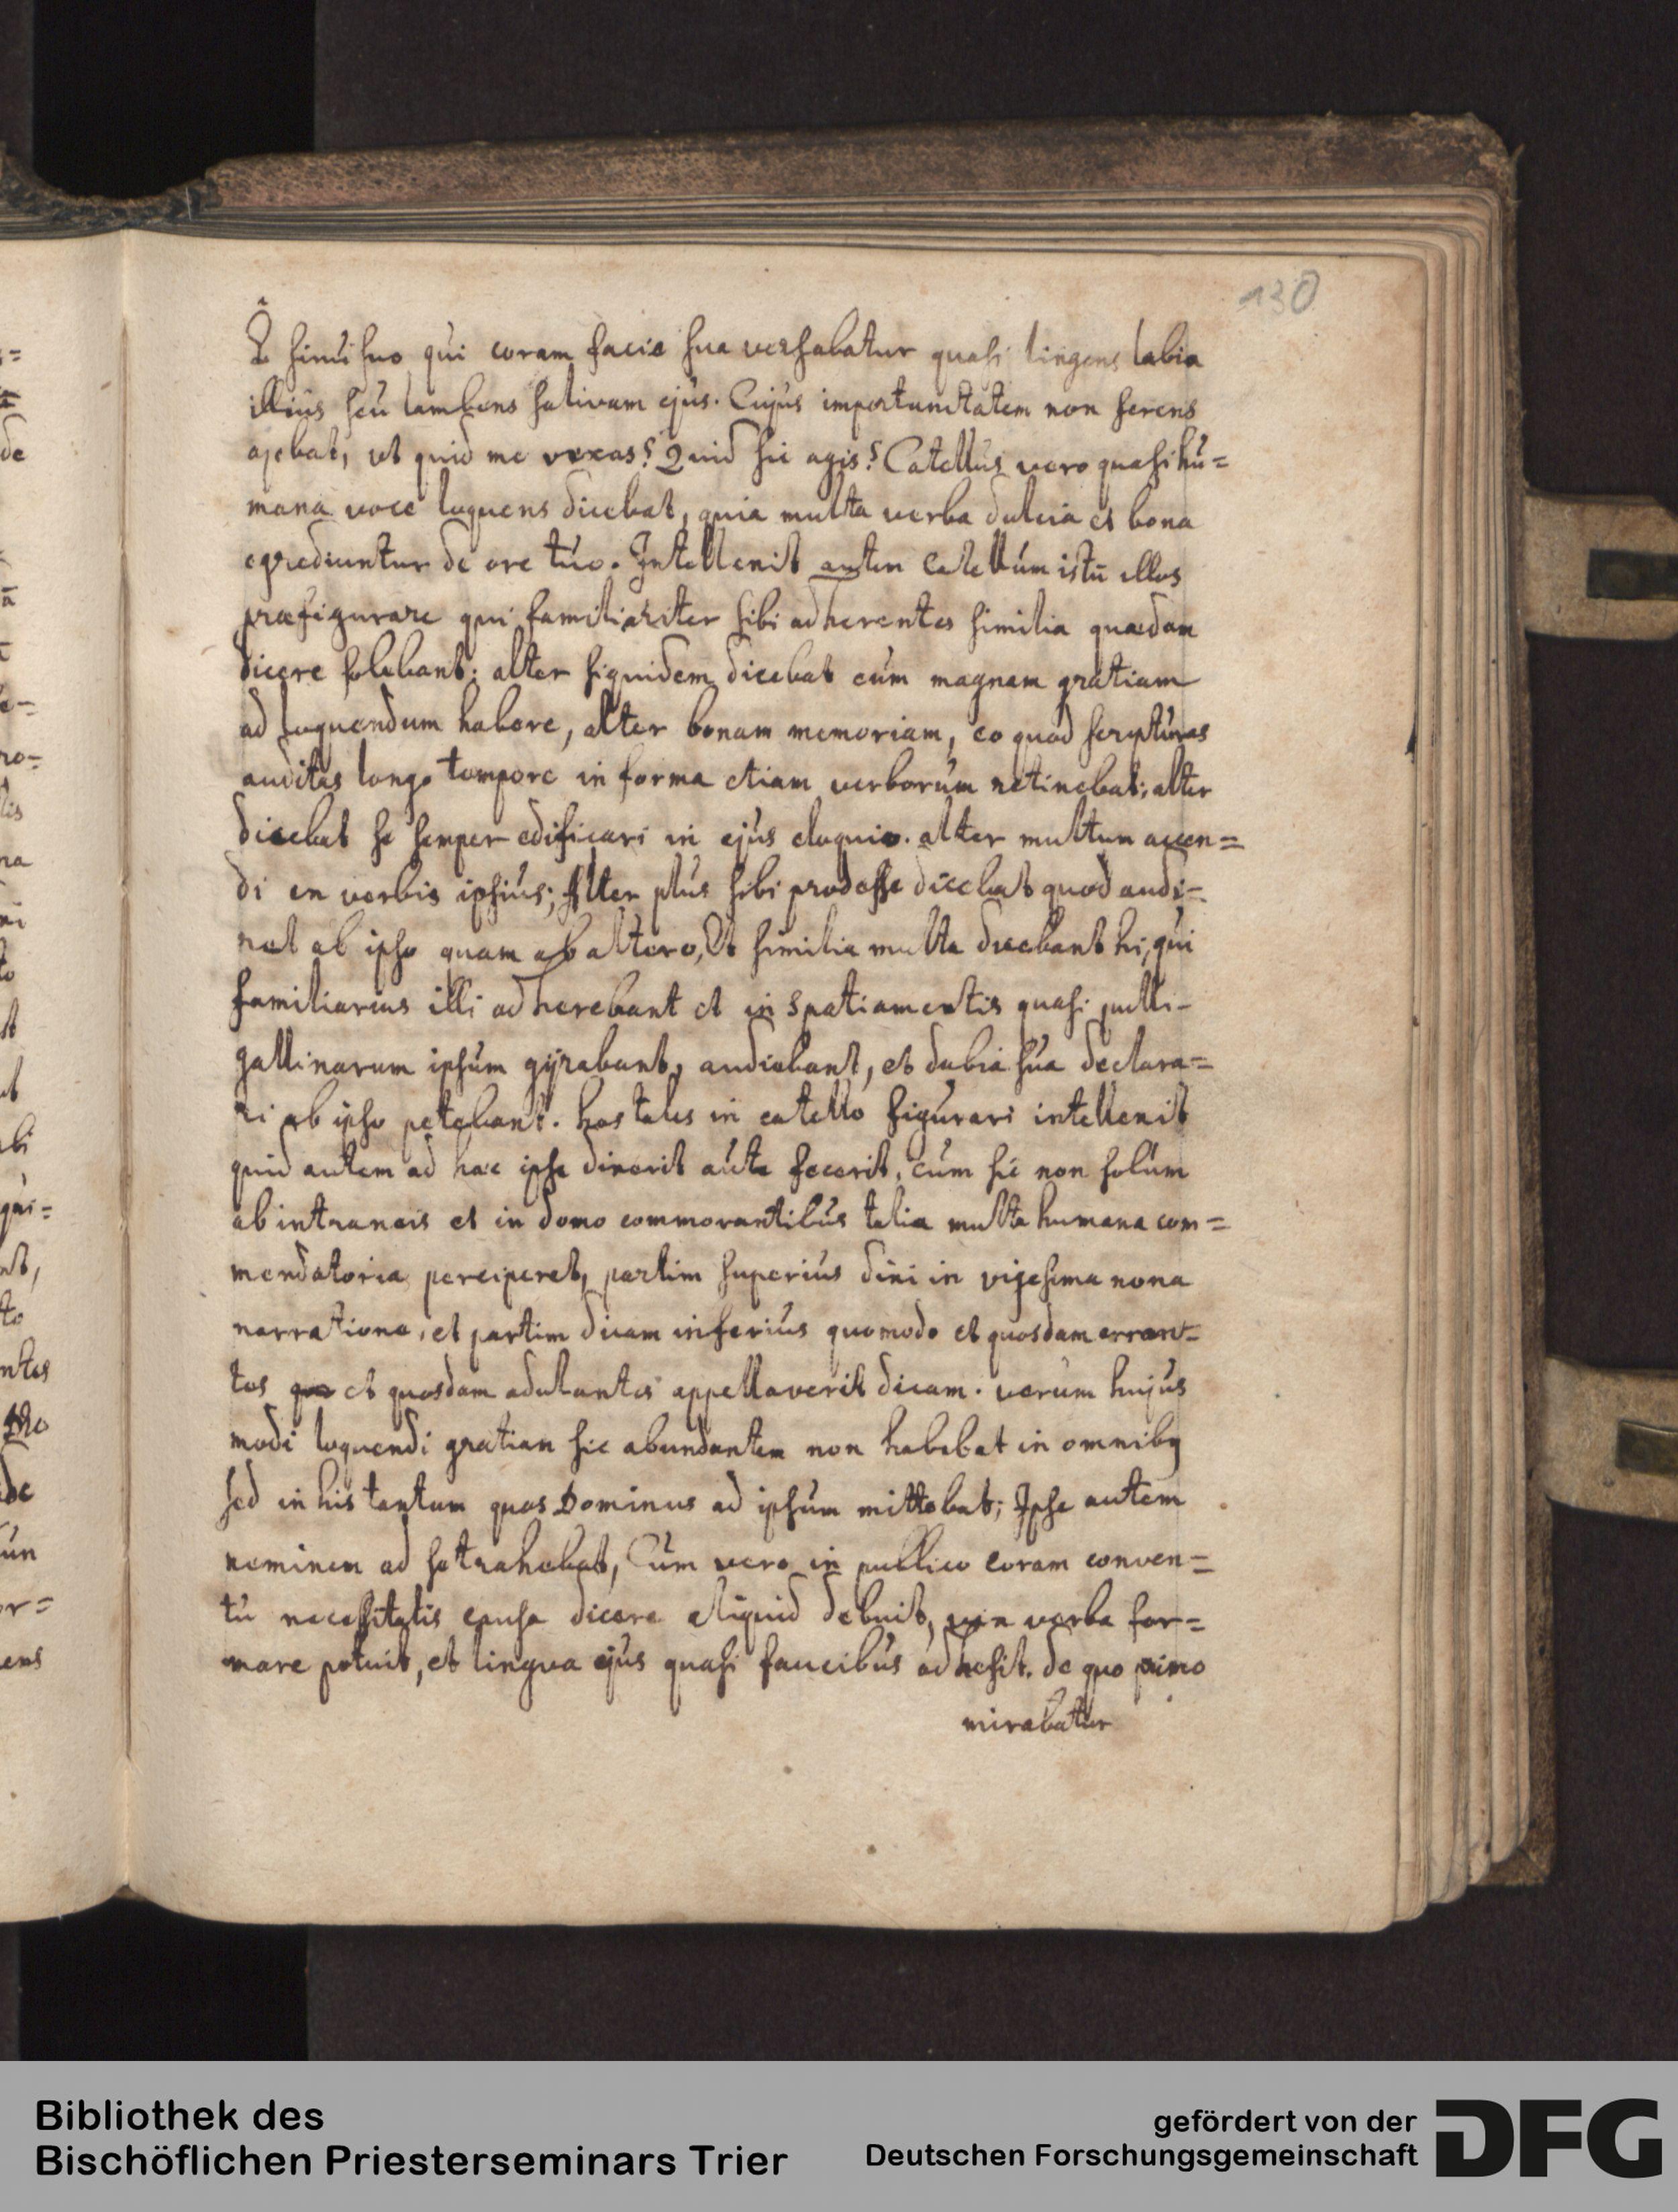 130
sinu suo qui coram facie sua versabatur quasi lingens labia
illius seu lambens salivam ejus. Cujus importunitatem non ferens
ajebat, ut quid me vexas? Quid sic agis? Catellus vero quasi hu=
mana voce loquens dicebat, quia multa verba dulcia et bona
egrediuntur de ore tuo. Intellexit autem Catellum istū illos
præfigurare qui familiariter sibi adherentes similia quædam
dicere solebant: alter siquidem dicebat eum magnam gratiam
ad loquendum habere, alter bonam memoriam, eo quod scripturas
auditas longo tempore in forma etiam verborum retinebat; alter
dicebat se semper edificari in ejus eloquio. alter multum accen=
di en verbis ipsius; Alter plus sibi prodesse dicebat quod audi=
ret ab ipso quam ab altero, Et similia multa dicebant hi, qui
familiarius illi adherebant et in spatiamentis quasi pulli-
gallinarum ipsum gÿrabant, audiebant, et dubia sua declara=
ri ab ipso petebant. hos tales in catello figurari intellexit
quid autem ad hæc ipse dixerit aute fecerit, cum sic non solum
ab extraneis et in domo commorantibus talia multa humana com=
mendatoria perciperet, partim superius dixi in vigesima nona
narratione, et partim dicam inferius quomodo et quosdam erran=
tes et quosdam adulantes appellaverit dicam. verum hujus
modi loquendi gratiam sic abundantem non habebat in omnibq
sed in his tantum quos Dominus ad ipsum mittebat; Ipse autem
neminem ad se trahebat, Cum vero in publico coram conven=
tu necessitatis causa dicere aliquid debuit, vix verba for=
mare potuit, et lingua ejus quasi faucibus adhesit. de quo primo
mirabatur
Bibliothek des
Bischöflichen Priesterseminars Trier
gefördert von der
Deutschen Forschungsgemeinschaft
DFG